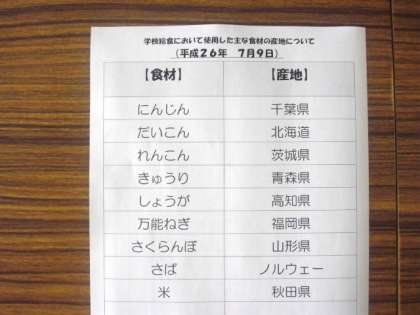 学校給食において使用した主な食材の産地について
(平成26年 7月9日)
【食材】 【産地】
にんじん 千葉県
だいこん 北海道
れんこん 茨城県
きゅうり 青森県
しょうが 高知県
万能ねぎ 福岡県
さくらんぼ 山形県
さば ノルウェー
米 秋田県